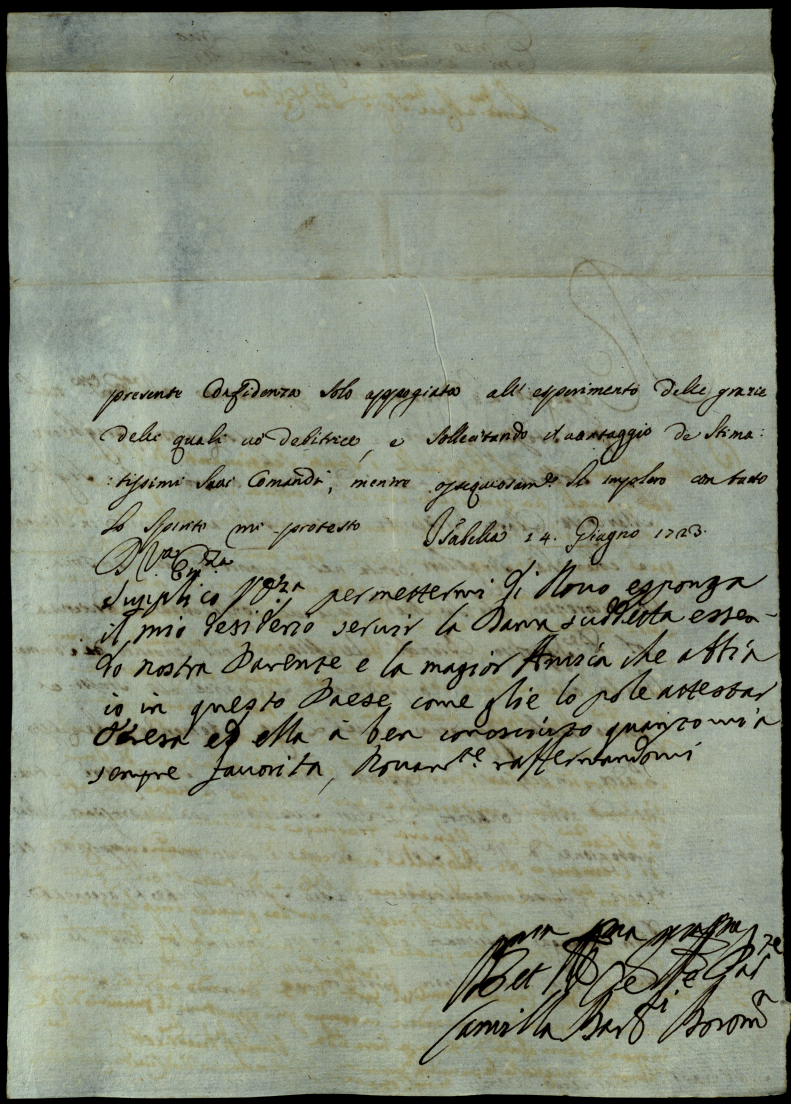 presente Confidenza solo appogiata all' esperimento delle grazie
delle quali vò debitrice, e sollecitando il vantaggio de stima:
:tissimi suoi Comandi, mentre ossequiosam.te Le imploro con tutto
Lo spirito mi protesto Isabella 24. Giugno 1723.
D V.ra Ecc.za
Supplico V.E.za permettermi di Novo esponga
il mio desiderio servir la Dama suddetta essen-
do nostra Parente e la magior Amicia che abbia
io in questo Paese come glie lo pole attestar
Teresa ed ella à ben conosciuto quanto mi à
sempre favorita, Novam.te raffermandomi
Camilla Bar Borom